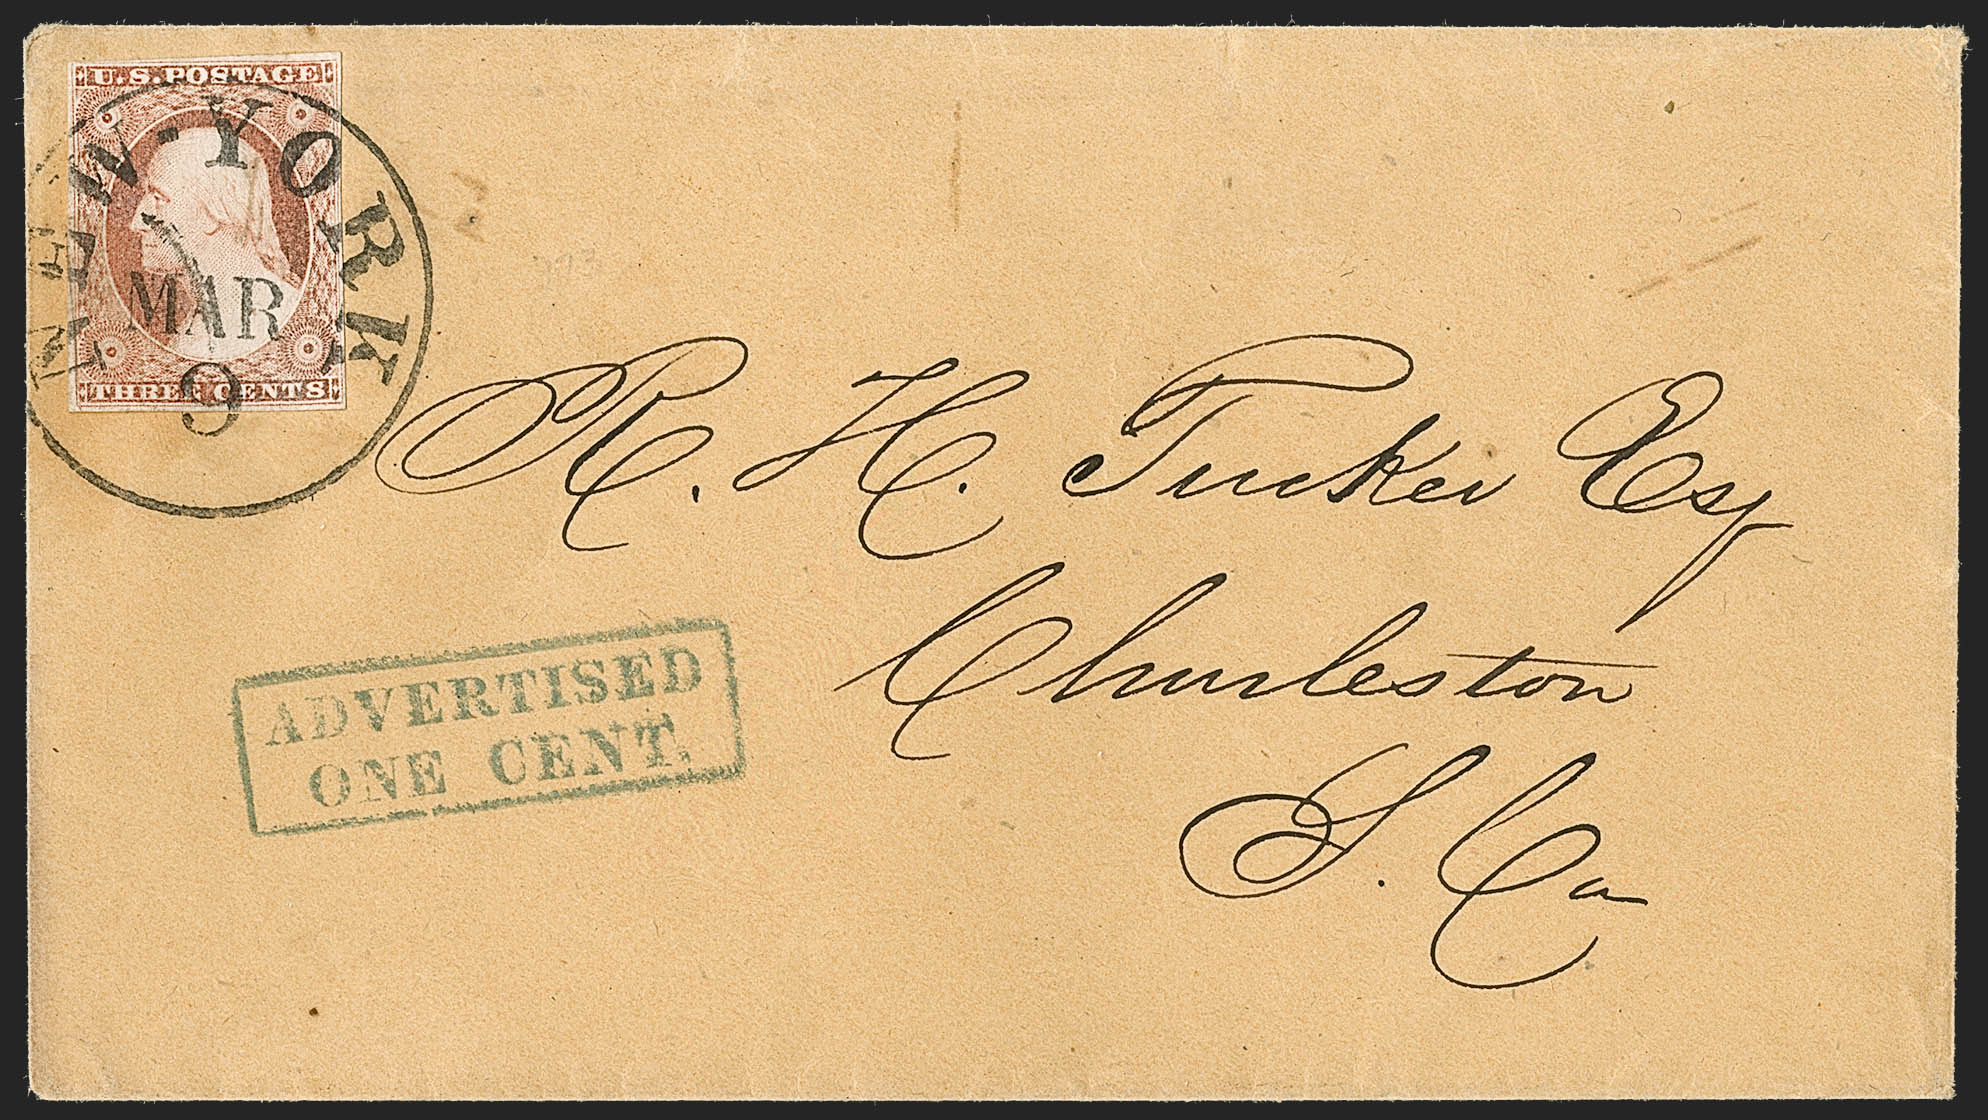 U.S. POSTAGE
THREE CENTS
NEW-YORK
MAR
9
R. H. Tucker Esq
Charleston
S. Ca
ADVERTISED
ONE CENT.